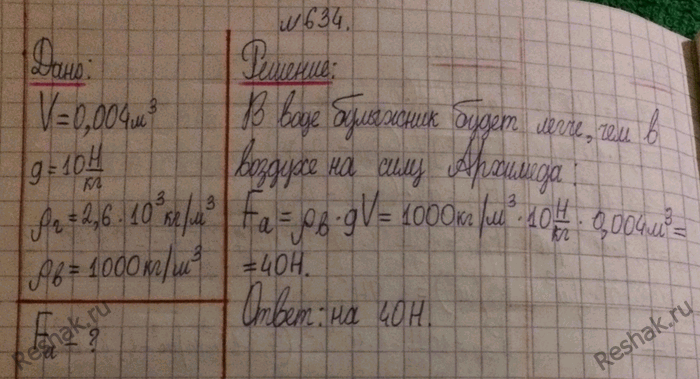 №634.
Дано:
V=0,004м³
g=10 Н/кг
ρг=2,6·10³кг/м³
ρв=1000кг/м³
Fа-?
Решение:
В воде булыжник будет легче, чем в
воздухе на силу Архимеда:
Fа=ρв·gV=1000кг/м³·10 Н/кг·0,004м³=
=40Н.
Ответ: на 40Н.
Reshak.ru
Reshak.ru